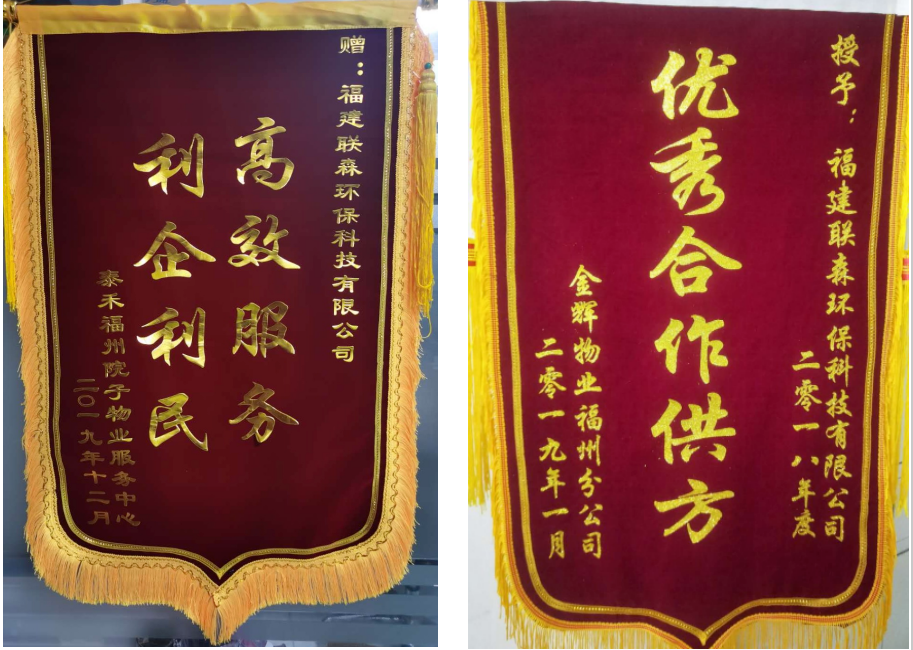 赠：福建联森环保科技有限公司
高效服务
利企利民
泰禾福州院子物业服务中心
二〇一九年十二月
授予：福建联森环保科技有限公司
二零一八年度
优秀合作供方
金辉物业福州分公司
二零一九年一月